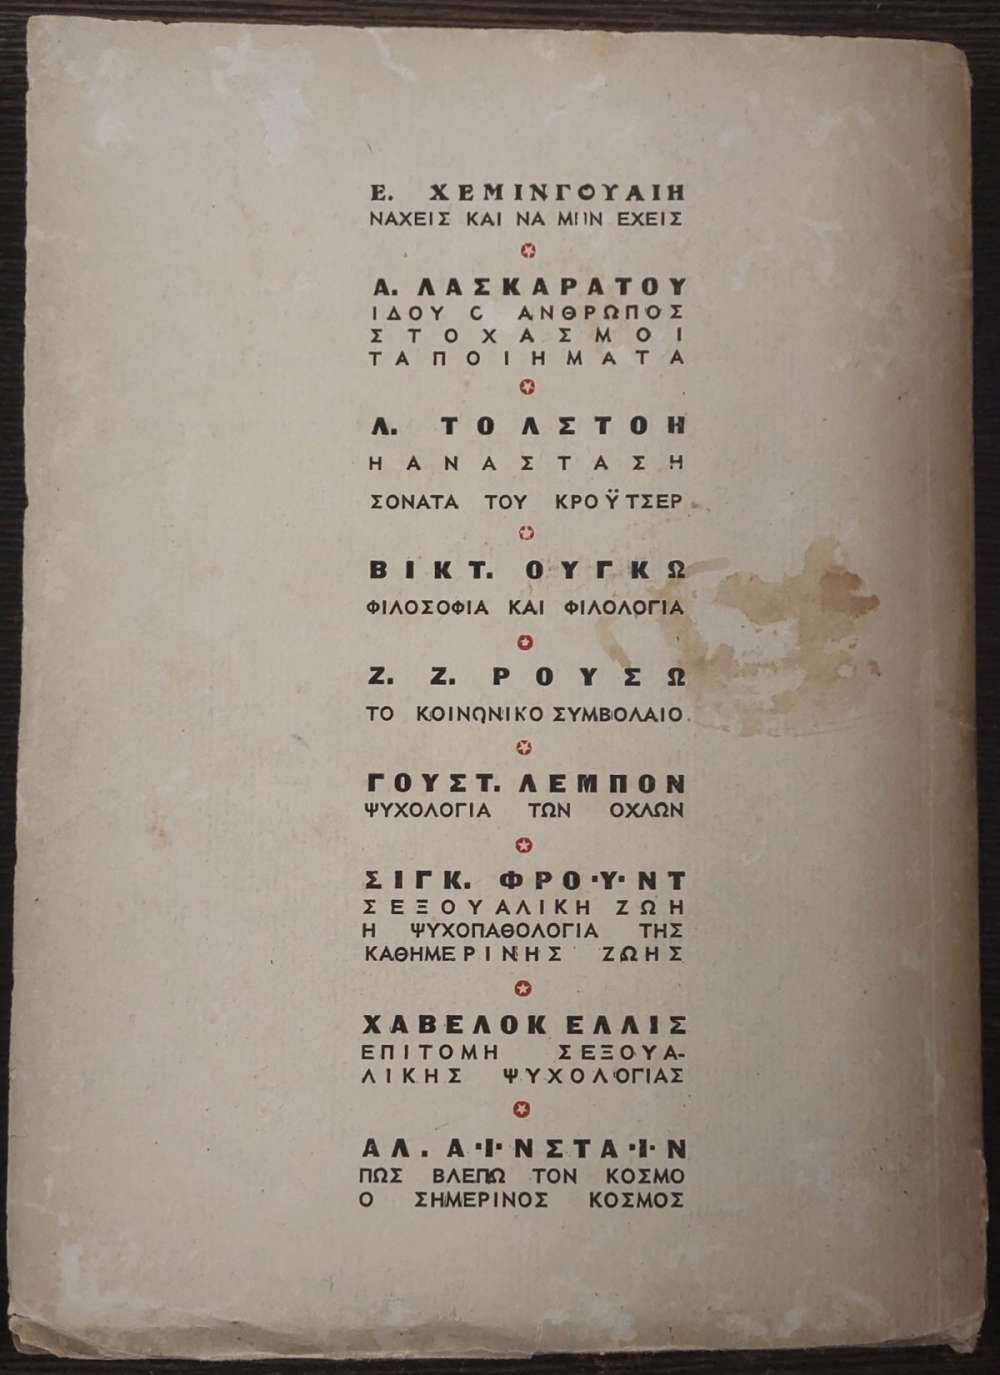 Ε. ΧΕΜΙΝΓΟΥΑΙΗ
ΝΑΧΕΙΣ ΚΑΙ ΝΑ ΜΗΝ ΕΧΕΙΣ
Α. ΛΑΣΚΑΡΑΤΟΥ
ΙΔΟΥ Ο ΑΝΘΡΩΠΟΣ
ΣΤΟΧΑΣΜΟΙ
ΤΑ ΠΟΙΗΜΑΤΑ
Λ. ΤΟΛΣΤΟΗ
Η ΑΝΑΣΤΑΣΗ
ΣΟΝΑΤΑ ΤΟΥ ΚΡΟΫΤΣΕΡ
ΒΙΚΤ. ΟΥΓΚΩ
ΦΙΛΟΣΟΦΙΑ ΚΑΙ ΦΙΛΟΛΟΓΙΑ
Ζ. Ζ. ΡΟΥΣΩ
ΤΟ ΚΟΙΝΩΝΙΚΟ ΣΥΜΒΟΛΑΙΟ
ΓΟΥΣΤ. ΛΕΜΠΟΝ
ΨΥΧΟΛΟΓΙΑ ΤΩΝ ΟΧΛΩΝ
ΣΙΓΚ. ΦΡΟ·Υ·ΝΤ
ΣΕΞΟΥΑΛΙΚΗ ΖΩΗ
Η ΨΥΧΟΠΑΘΟΛΟΓΙΑ ΤΗΣ
ΚΑΘΗΜΕΡΙΝΗΣ ΖΩΗΣ
ΧΑΒΕΛΟΚ ΕΛΛΙΣ
ΕΠΙΤΟΜΗ ΣΕΞΟΥΑ-
ΛΙΚΗΣ ΨΥΧΟΛΟΓΙΑΣ
ΑΛ. Α·Ι·ΝΣΤΑ·Ι·Ν
ΠΩΣ ΒΛΕΠΩ ΤΟΝ ΚΟΣΜΟ
Ο ΣΗΜΕΡΙΝΟΣ ΚΟΣΜΟΣ